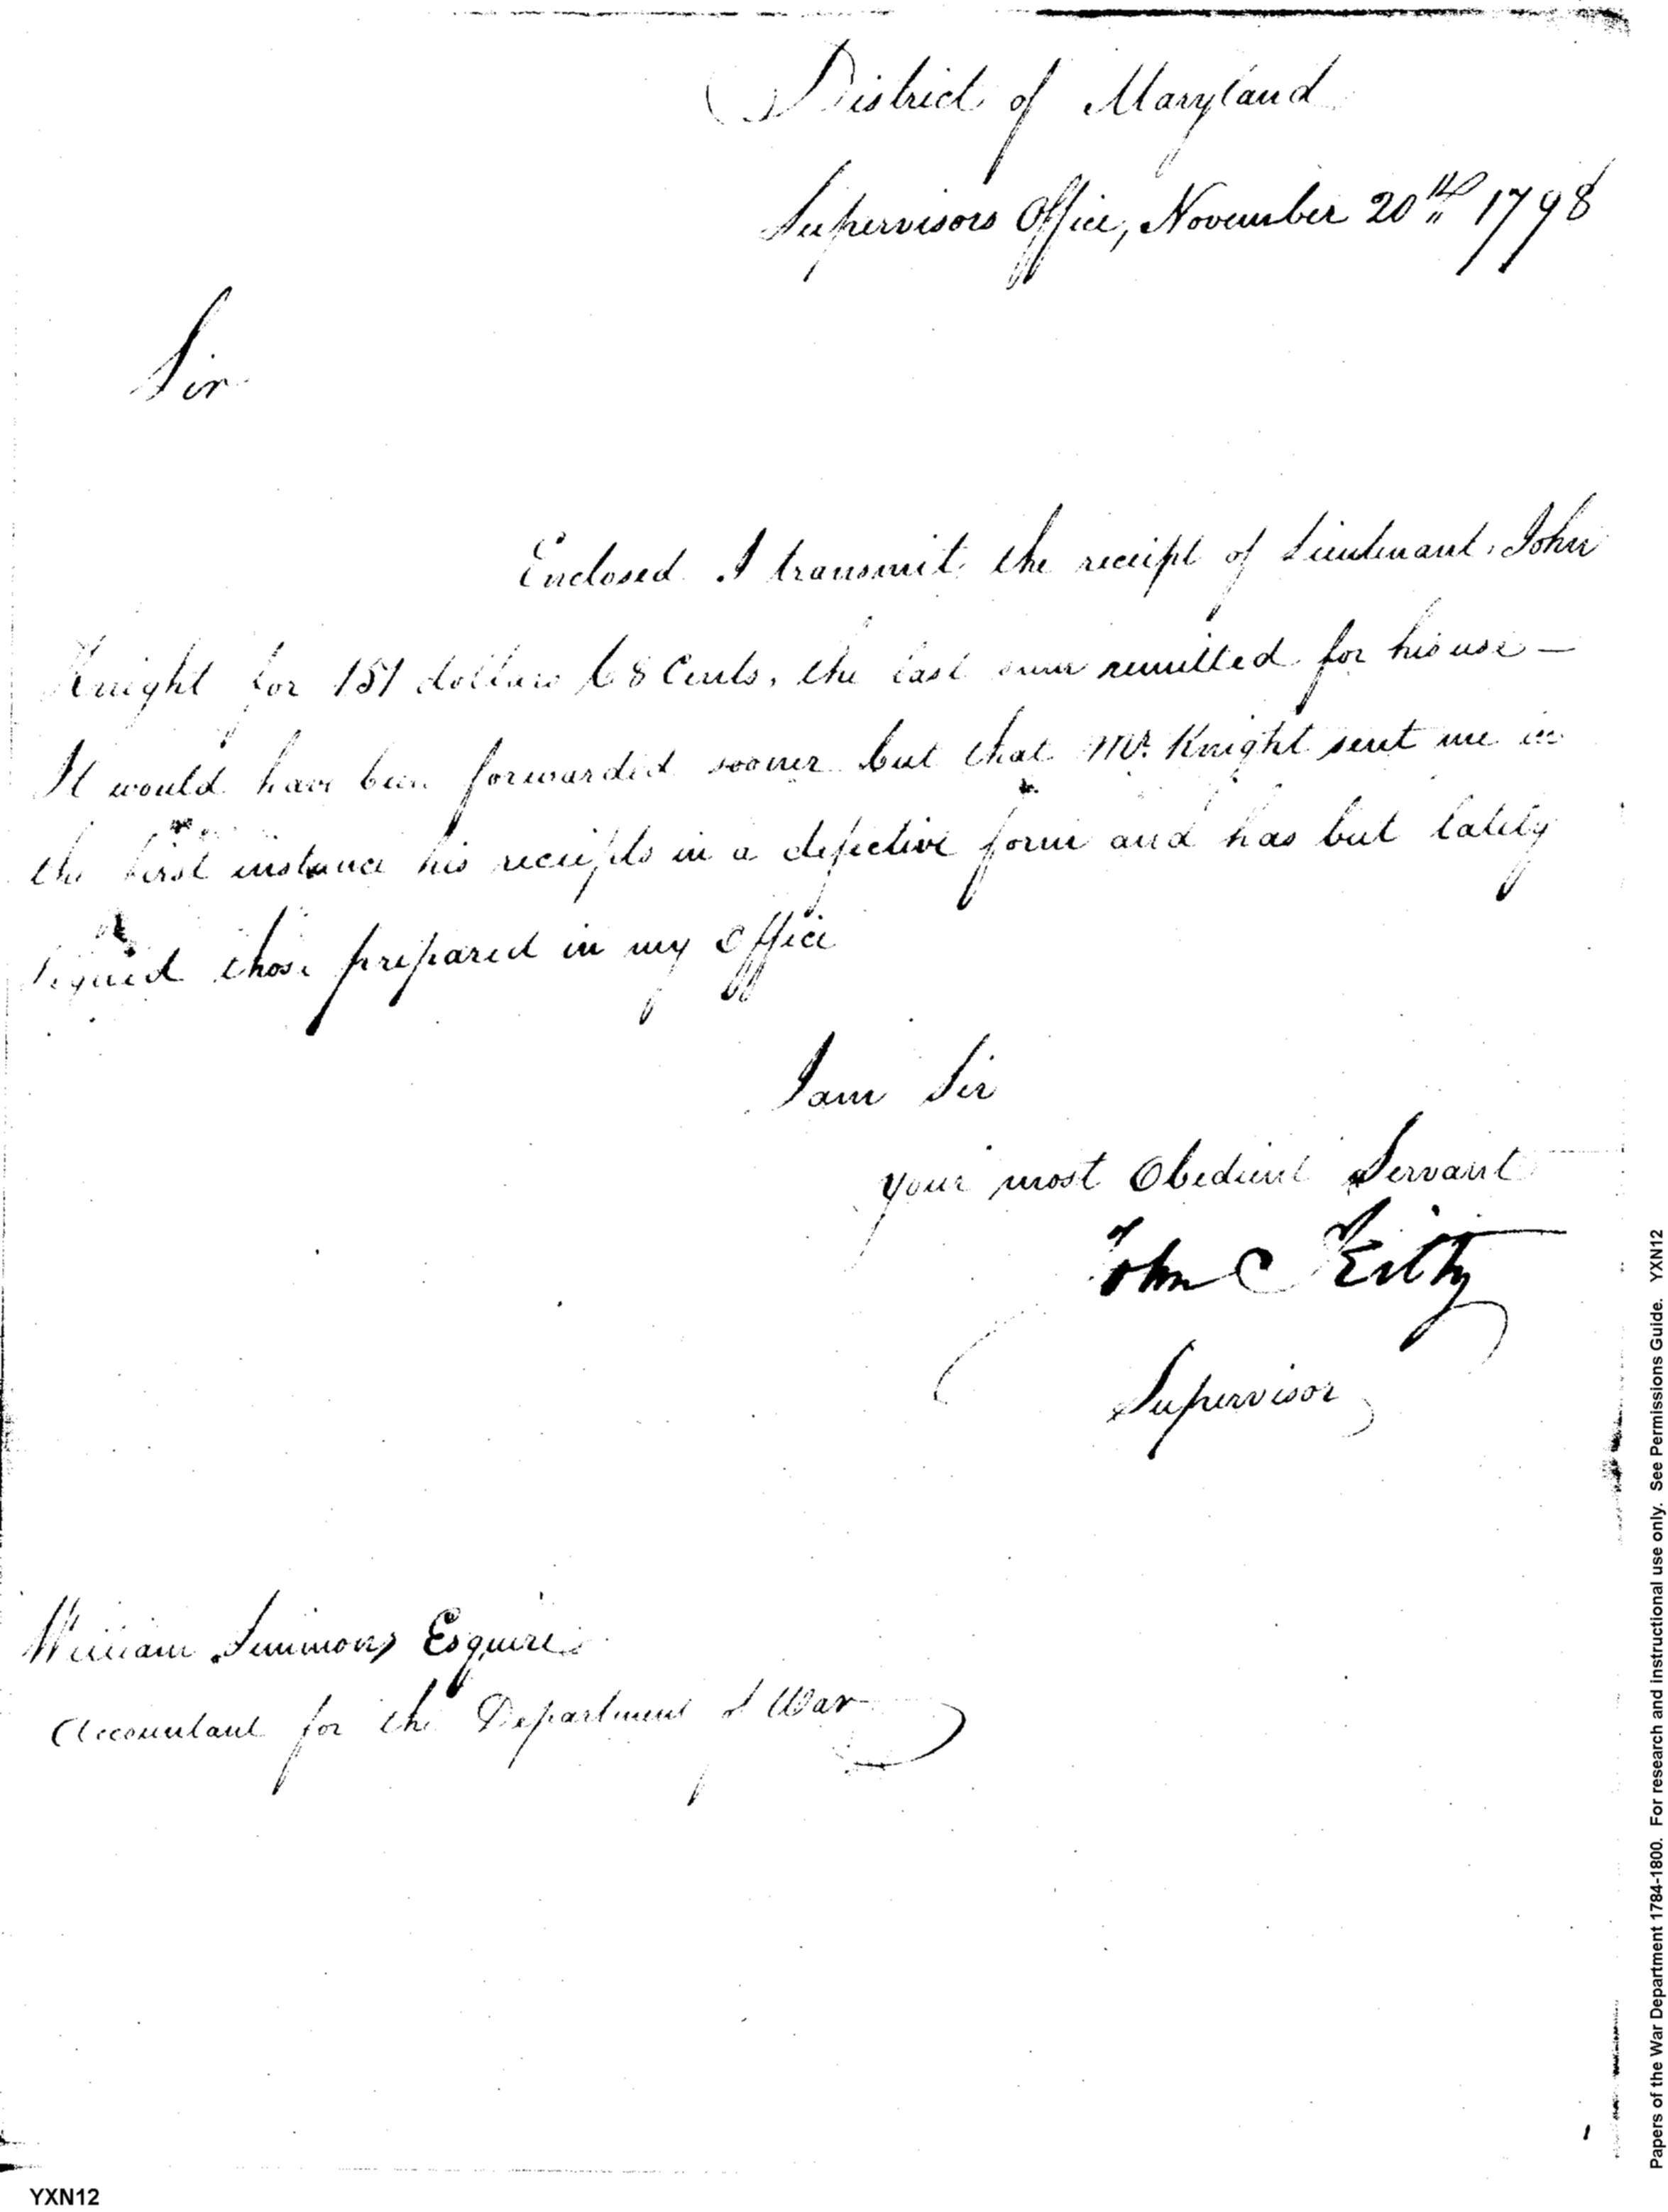 District of Maryland
Supervisors Office, November 20th 1798
Sir
Enclosed I transmit the receipt of Lieutenant John
Knight for 151 dollars 68 Cents, the last sum remitted for his use —
It would have been forwarded sooner but that Mr. Knight sent me in
the first instance his receipts in a defective form and has but lately
signed those prepared in my Office
I am Sir
your most Obedient Servant
John Kilty
Supervisor
William Simmons Esquire
Accountant for the Department of War
Papers of the War Department 1784-1800. For research and instructional use only. See Permissions Guide. YXN12
YXN12